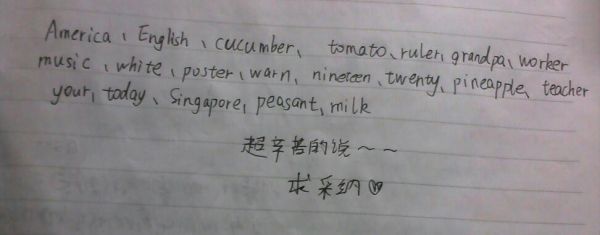 America、English、cucumber、tomato、ruler、grandpa、worker
music、white、poster、warn、nineteen、twenty、pineapple、teacher
your、today、Singapore、peasant、milk
超辛苦的说~~
求采纳♡